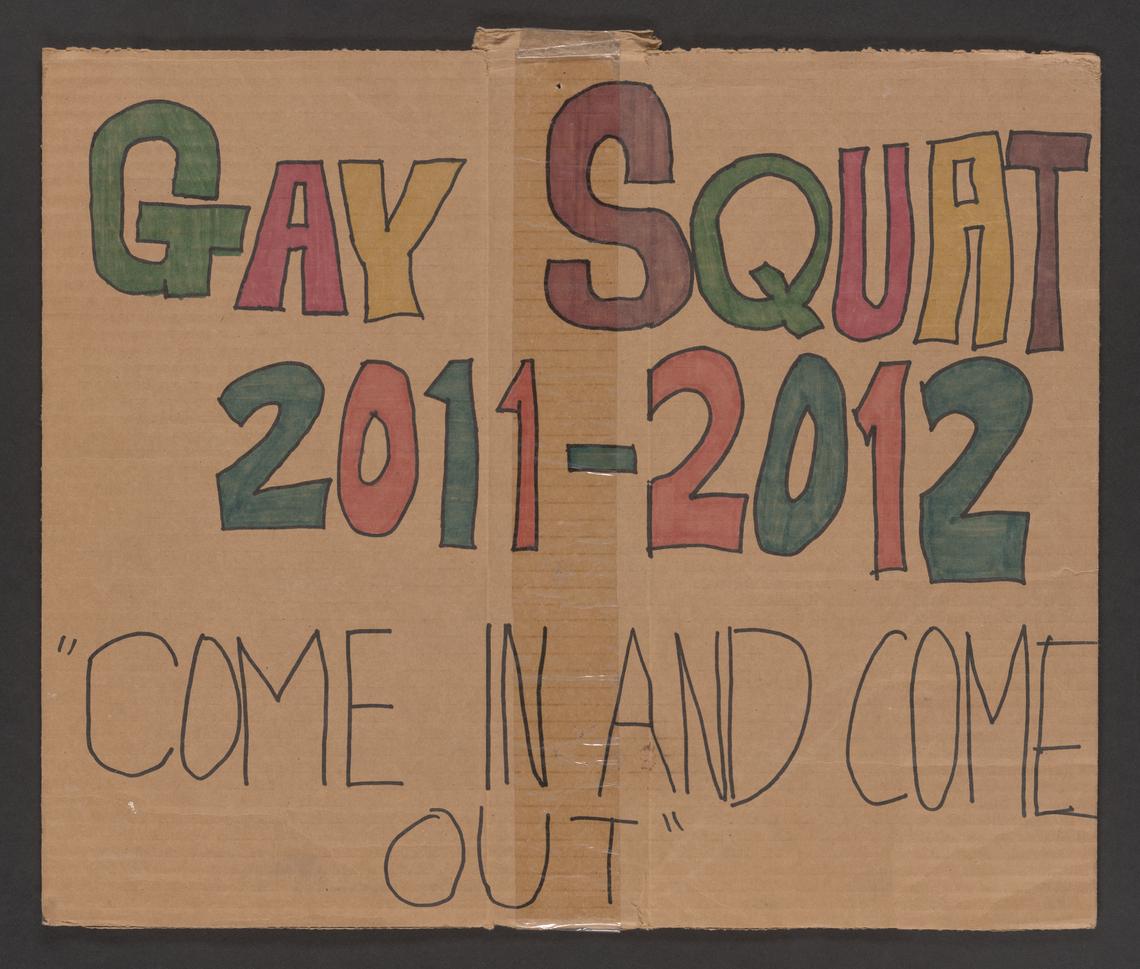 GAY SQUAT
2011-2012
"COME IN AND COME
OUT"